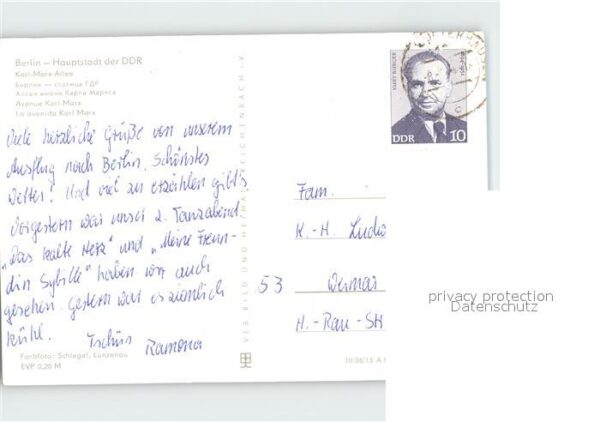 Berlin – Hauptstadt der DDR
Karl-Marx-Allee
Берлин — столица ГДР
Аллея имени Карла Маркса
Avenue Karl Marx
La avenida Karl Marx
Viele herzliche Grüße von unserem
Ausflug nach Berlin. Schönstes
Wetter! Und viel zu erzählen gibt's
Vorgestern war unser 2. Tanzabend
„Das kalte Herz" und „Meine Freun-
din Sybille" haben wir auch
gesehen. Gestern war es ziemlich
kühl.
Tschüs
Ramona
Farbfoto: Schlegel, Lunzenau
EVP 0,20 M
VEB BILD UND HEIMAT REICHENBACH i. V.
KURT BÜRGER
DDR 10
Fam.
K.-H. Ludw
53 Weimar
H.-Rau-St
III/26/13 A 1
privacy protection
Datenschutz